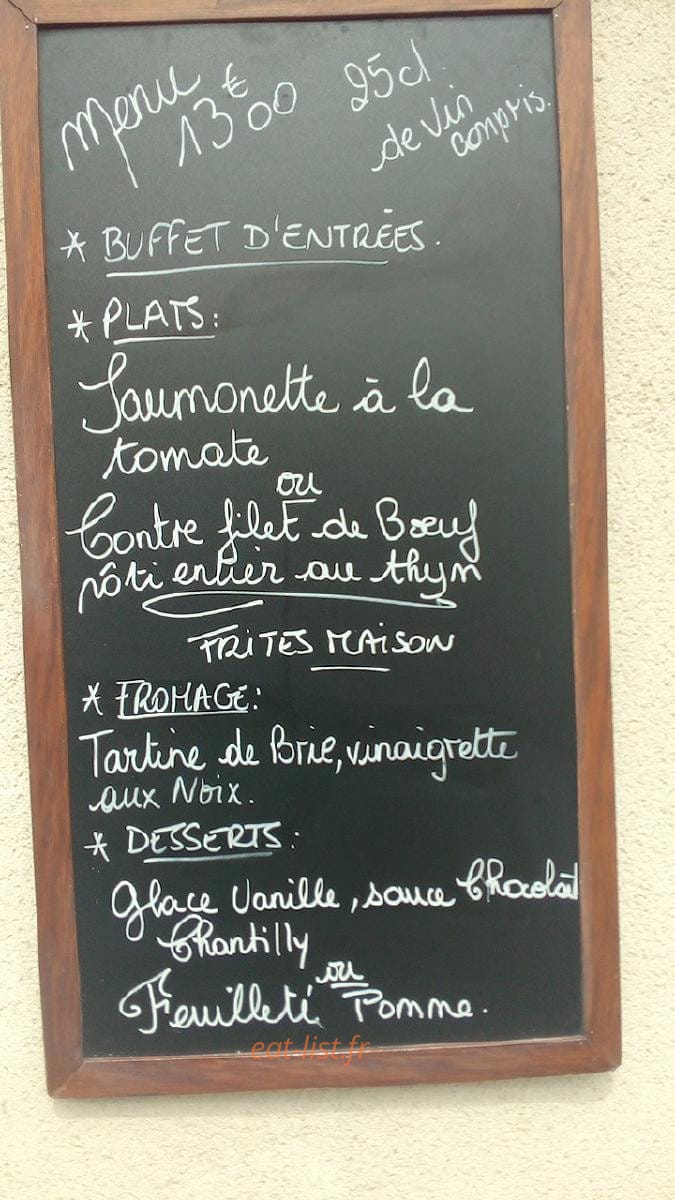 Menu 13€00 25cl.
de vin
compris.
* BUFFET D'ENTRÉES.
* PLATS:
Saumonette à la
tomate
ou
Contre filet de Bœuf
rôti entier au thym
FRITES MAISON
* FROMAGE:
Tartine de Brie, vinaigrette
aux Noix.
* DESSERTS:
Glace Vanille, sauce Chocolat
Chantilly
ou
Feuilleté Pomme.
eat-list.fr